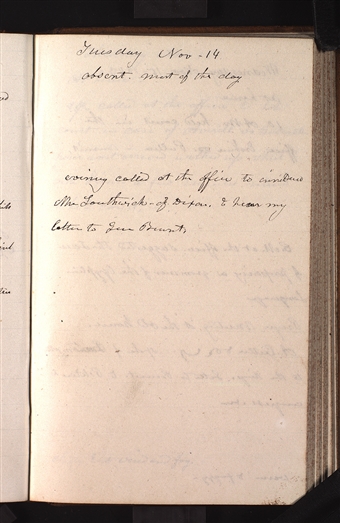 Tuesday Nov - 14
absent. most of the day
evening called at the office to
Mr Southwick - of Dixon. & hear my
letter to Gen